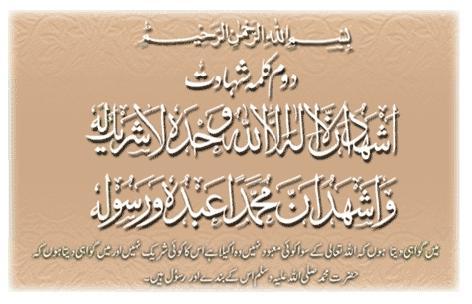 بِسْمِ اللهِ الرَّحْمٰنِ الرَّحِيْمِ
دوم کلمہ شہادت
اَشْهَدُ اَنْ لَّا اِلٰهَ اِلَّا اللهُ وَحْدَهٗ لَا شَرِيْكَ لَهٗ
وَاَشْهَدُ اَنَّ مُحَمَّدًا عَبْدُهٗ وَرَسُوْلُهٗ
میں گواہی دیتا ہوں کہ اللہ تعالیٰ کے سوا کوئی معبود نہیں وہ اکیلا ہے اس کا کوئی شریک نہیں اور میں گواہی دیتا ہوں کہ
حضرت محمد صلی اللہ علیہ وسلم اس کے بندے اور رسول ہیں۔